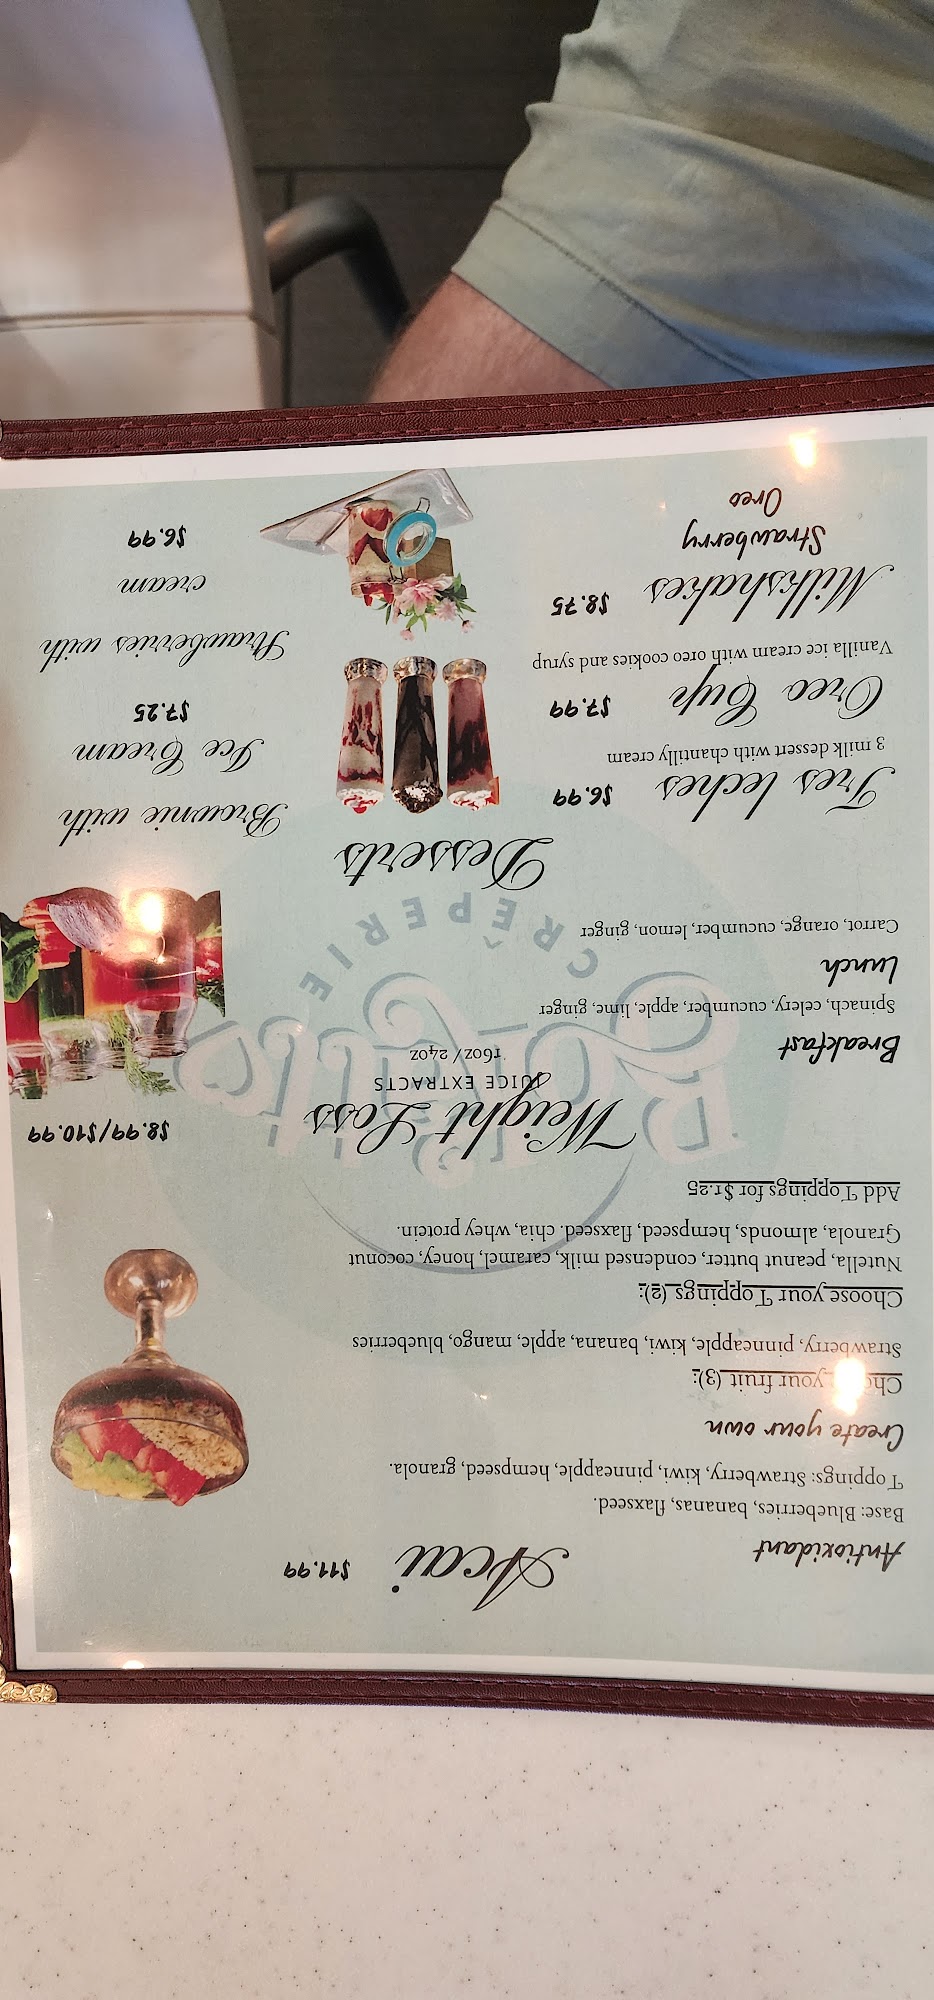 Acai
$11.99
Antioxidant
Base: Blueberries, bananas, flaxseed.
Toppings: Strawberry, kiwi, pinneapple, hempseed, granola.
Create your own
Choose your fruit (3):
Strawberry, pinneapple, kiwi, banana, apple, mango, blueberries
Choose your Toppings (2):
Nutella, peanut butter, condensed milk, caramel, honey, coconut
Granola, almonds, hempseed, flaxseed. chia, whey protein.
Add Toppings for $1.25
Weight Loss
$8.99/$10.99
JUICE EXTRACTS
16oz / 24oz
Breakfast
Spinach, celery, cucumber, apple, lime, ginger
Lunch
Carrot, orange, cucumber, lemon, ginger
CRÊPERIE
Desserts
Tres leches $6.99
3 milk dessert with chantilly cream
Oreo Cup $7.99
Vanilla ice cream with oreo cookies and syrup
Milkshakes $8.75
Strawberry
Oreo
Brownie with
Ice Cream
$7.25
Strawberries with
cream
$6.99